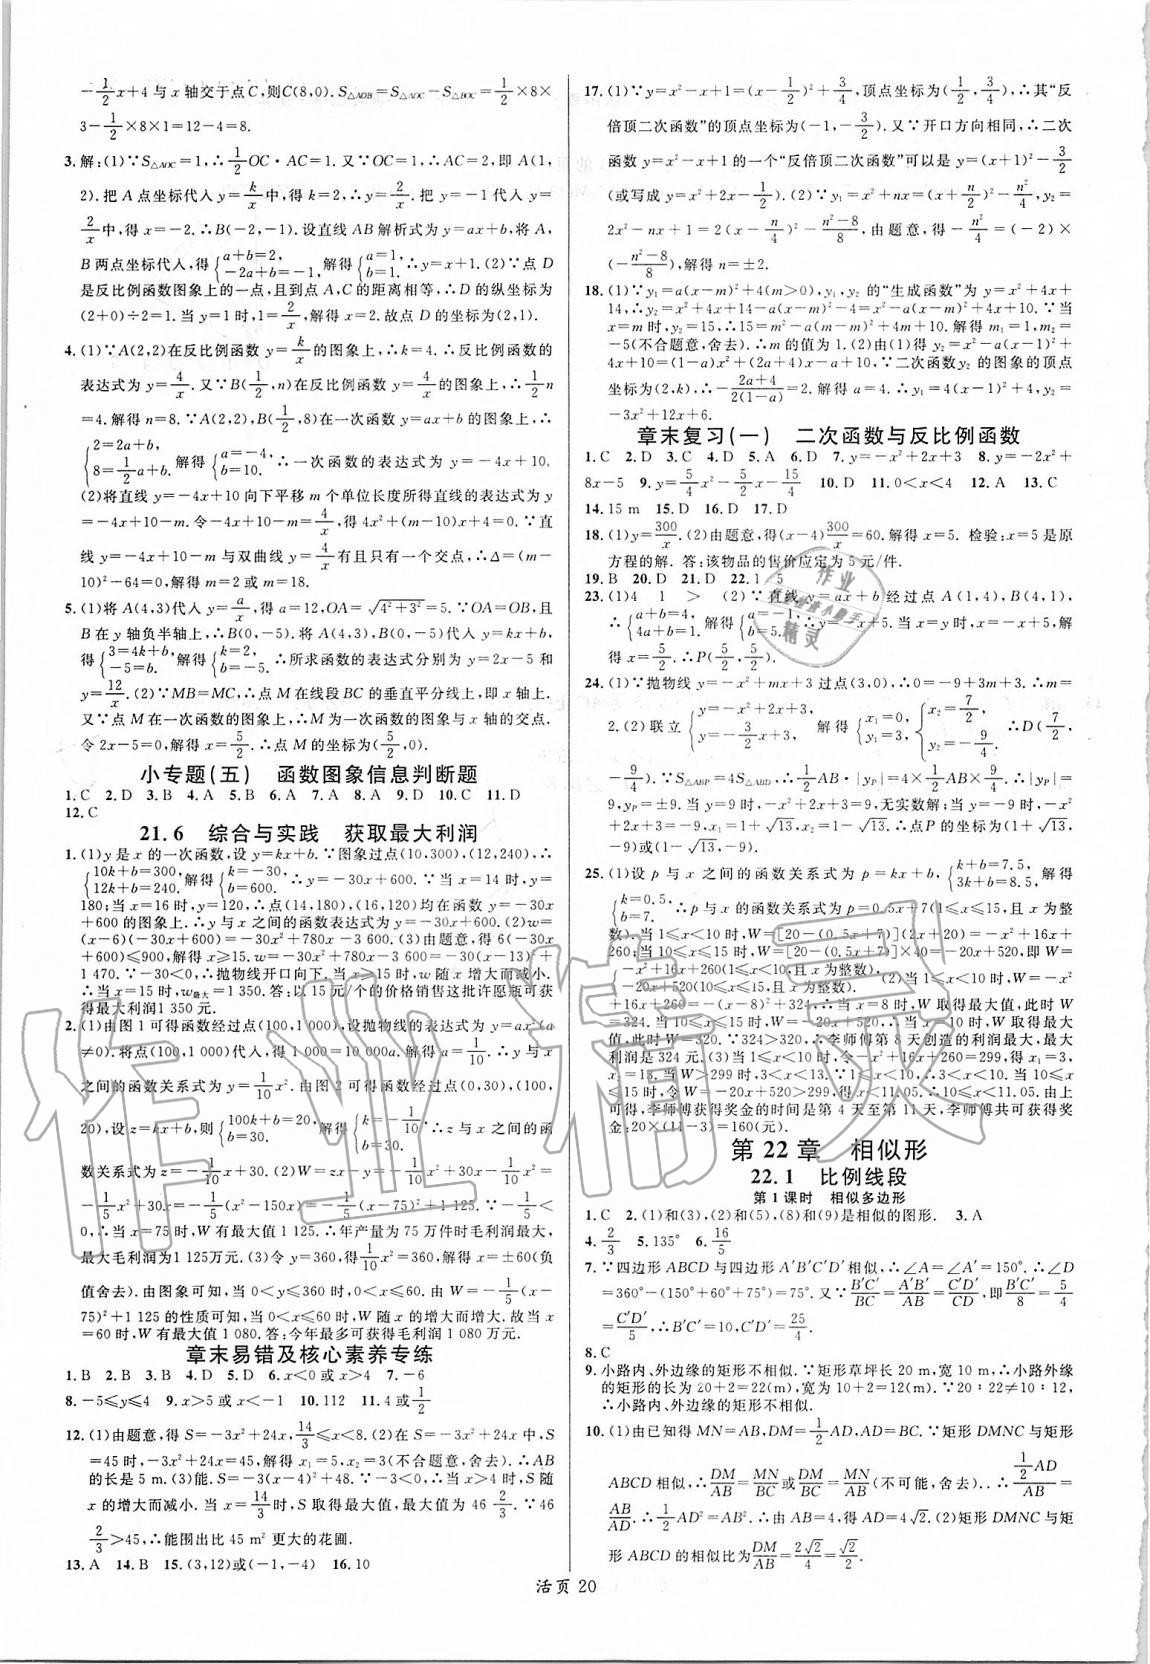 -1/2x+4与x轴交于点C,则C(8,0). S△AOB=S△AOC-S△BOC=1/2×8×
3-1/2×8×1=12-4=8.
3. 解:(1)∵S△AOC=1,∴1/2OC·AC=1.又∵OC=1,∴AC=2,即A(1,
2).把A点坐标代入y=k/x中,得k=2.∴y=2/x.把y=-1代入y=
2/x中,得x=-2.∴B(-2,-1).设直线AB解析式为y=ax+b,将A,
B两点坐标代入,得{a+b=2, -2a+b=-1.解得{a=1, b=1.∴y=x+1.(2)∵点D
是反比例函数图象上的一点,且到点A,C的距离相等,∴D的纵坐标为
(2+0)÷2=1.当y=1时,1=2/x,解得x=2.故点D的坐标为(2,1).
4. (1)∵A(2,2)在反比例函数y=k/x的图象上,∴k=4.∴反比例函数的
表达式为y=4/x.又∵B(1/2,n)在反比例函数y=4/x的图象上,∴1/2n
=4.解得n=8.∵A(2,2),B(1/2,8)在一次函数y=ax+b的图象上,∴
{2=2a+b, 8=1/2a+b.解得{a=-4, b=10.∴一次函数的表达式为y=-4x+10.
(2)将直线y=-4x+10向下平移m个单位长度所得直线的表达式为y
=-4x+10-m.令-4x+10-m=4/x,得4x²+(m-10)x+4=0.∵直
线y=-4x+10-m与双曲线y=4/x有且只有一个交点,∴Δ=(m-
10)²-64=0.解得m=2或m=18.
5. (1)将A(4,3)代入y=a/x,得a=12,OA=√4²+3²=5.∵OA=OB,且
B在y轴负半轴上,∴B(0,-5).将A(4,3),B(0,-5)代入y=kx+b,
得{3=4k+b, -5=b.解得{k=2, b=-5.∴所求函数的表达式分别为y=2x-5和
y=12/x.(2)∵MB=MC,∴点M在线段BC的垂直平分线上,即x轴上.
又∵点M在一次函数的图象上,∴M为一次函数的图象与x轴的交点.
令2x-5=0,解得x=5/2.∴点M的坐标为(5/2,0).
小专题(五) 函数图象信息判断题
1. C 2. D 3. B 4. A 5. B 6. A 7. C 8. D 9. D 10. C 11. D
12. C
21.6 综合与实践 获取最大利润
1. (1)y是x的一次函数,设y=kx+b.∵图象过点(10,300),(12,240),∴
{10k+b=300, 12k+b=240.解得{k=-30, b=600.∴y=-30x+600.∵当x=14时,y=
180;当x=16时,y=120,∴点(14,180),(16,120)均在函数y=-30x
+600的图象上.∴y与x之间的函数表达式为y=-30x+600.(2)w=
(x-6)(-30x+600)=-30x²+780x-3 600.(3)由题意,得6(-30x
+600)≤900,解得x≥15.w=-30x²+780x-3 600=-30(x-13)²+
1 470.∵-30<0,∴抛物线开口向下.当x≥15时,w随x增大而减小.
∴当x=15时,w最大=1 350.答:以15元/个的价格销售这批许愿瓶可获
得最大利润1 350元.
2. (1)由图1可得函数经过点(100,1 000),设抛物线的表达式为y=ax²(a
≠0).将点(100,1 000)代入,得1 000=10 000a.解得a=1/10.∴y与x
之间的函数关系式为y=1/10x².由图2可得函数经过点(0,30),(100,
20),设z=kx+b,则{100k+b=20, b=30.解得{k=-1/10, b=30.∴z与x之间的函
数关系式为z=-1/10x+30.(2)W=zx-y=-1/10x²+30x-1/10x²=
-1/5x²+30x=-1/5(x²-150x)=-1/5(x-75)²+1 125.∵-1/5
<0,∴当x=75时,W有最大值1 125.∴年产量为75万件时毛利润最大,
最大毛利润为1 125万元.(3)令y=360,得1/10x²=360,解得x=±60(负
值舍去).由图象可知,当0<y≤360时,0<x≤60.由W=-1/5(x-
75)²+1 125的性质可知,当0<x≤60时,W随x的增大而增大.故当x
=60时,W有最大值1 080.答:今年最多可获得毛利润1 080万元.
章末易错及核心素养专练
1. B 2. B 3. C 4. D 5. D 6. x<0或x>4 7. -6
8. -5≤y≤4 9. x>5或x<-1 10. 112 11. 4或1/2
12. (1)由题意,得S=-3x²+24x,14/3≤x<8.(2)在S=-3x²+24x中,S
=45时,-3x²+24x=45,解得x₁=5,x₂=3(不合题意,舍去).∴AB
的长是5 m.(3)能.S=-3(x-4)²+48.∵当x>4时,y随
x的增大而减小.当x=14/3时,S取得最大值,最大值为46 2/3.∵46
2/3>45,∴能围出比45 m²更大的花圃.
13. A 14. B 15. (3,12)或(-1,-4) 16. 10
17. (1)∵y=x²-x+1=(x-1/2)²+3/4,顶点坐标为(1/2,3/4),∴其“反
倍顶二次函数”的顶点坐标为(-1,-3/2).又∵开口方向相同,∴二次
函数y=x²-x+1的一个“反倍顶二次函数”可以是y=(x+1)²-3/2
(或写成y=x²+2x-1/2).(2)∵y₁=x²+nx=(x+n/2)²-n²/4,y₂=
2x²-nx+1=2(x-n/4)²-n²-8/8,由题意,得-n²/4=(-2)×
(-n²-8/8),解得n=±2.
18. (1)∵y₁=a(x-m)²+4(m>0),y₁,y₂的“生成函数”为y=x²+4x+
14,∴y₂=x²+4x+14-a(x-m)²-4=x²-a(x-m)²+4x+10.∵当
x=m时,y₂=15,∴15=m²-a(m-m)²+4m+10.解得m₁=1,m₂=
-5(不合题意,舍去).∴m的值为1.(2)由(1)得y₂=x²-a(x-1)²+
4x+10=(1-a)x²+(2a+4)x-a+10,∵二次函数y₂的图象的顶点
坐标为(2,k),∴-2a+4/2(1-a)=2.解得a=4.∴y₁=4(x-1)²+4,y₂=
-3x²+12x+6.
章末复习(一) 二次函数与反比例函数
1. C 2. D 3. C 4. D 5. A 6. D 7. y=-x²+2x+3 8. y=-2x²+
8x-5 9. y=5/4x²-5/2x-15/4 10. D 11. 0<x<4 12. A 13. C
14. 15 m 15. D 16. D 17. D
18. (1)y=300/x.(2)由题意,得(x-4)300/x=60.解得x=5.检验:x=5是原
方程的解.答:该物品的售价应定为5元/件.
19. B 20. D 21. D 22. 1 5
23. (1)4 1 > (2)∵直线y=ax+b经过点A(1,4),B(4,1),
∴{a+b=4, 4a+b=1.解得{a=-1, b=5.∴y=-x+5.当x=y时,x=-x+5.解
得x=5/2.∴P(5/2,5/2).
24. (1)∵抛物线y=-x²+mx+3过点(3,0),∴0=-9+3m+3.∴m=
2.(2)联立{y=-x²+2x+3, y=-x/2+3,得{x₁=0, y₁=3,{x₂=7/2, y₂=-9/4.∴D(7/2,
-9/4).∵S△ABP=4S△ABD,∴1/2AB·|yP|=4×1/2AB×9/4.∴|yP|=
9,yP=±9.当y=9时,-x²+2x+3=9,无实数解;当y=-9时,-x²
+2x+3=-9,x₁=1+√13,x₂=1-√13.∴点P的坐标为(1+√13,
-9)或(1-√13,-9).
25. (1)设p与x之间的函数关系式为p=kx+b,则有{k+b=7.5, 3k+b=8.5,解得
{k=0.5, b=7.∴p与x的函数关系式为p=0.5x+7(1≤x≤15,且x为整
数).当1≤x<10时,W=[20-(0.5x+7)](2x+20)=-x²+16x+
260;当10≤x≤15时,W=[20-(0.5x+7)]×40=-20x+520,∴W=
{-x²+16x+260(1≤x<10,且x为整数), -20x+520(10≤x≤15,且x为整数).(2)当1≤x<10时,W=-x²+
16x+260=-(x-8)²+324,∴当x=8时,W取得最大值,此时W=
324.当10≤x≤15时,W=-20x+520,∴当x=10时,W取得最大
值,此时W=320.∵324>320,∴李师傅第8天创造的利润最大,最大
利润是324元.(3)当1≤x<10时,令-x²+16x+260=299,得x₁=3,
x₂=13.当W>299时,3<x<13.∵1≤x<10,∴3<x<10.当10≤x
≤15时,令W=-20x+520>299,得x<11.05.∴10≤x≤11.由上
可得,李师傅获得奖金的时间是第4天至第11天,李师傅共可获得奖
金:20×(11-3)=160(元).
第22章 相似形
22.1 比例线段
第1课时 相似多边形
1. C 2. (1)和(3),(2)和(5),(8)和(9)是相似的图形. 3. A
4. 2/3 5. 135° 6. 16/5
7. ∵四边形ABCD与四边形A′B′C′D′相似,∴∠A=∠A′=150°.∴∠D
=360°-(150°+60°+75°)=75°.又∵B′C′/BC=A′B′/AB=C′D′/CD,即B′C′/8=5/4
=C′D′/5,∴B′C′=10,C′D′=25/4.
8. C
9. 小路内、外边缘的矩形不相似.∵矩形草坪长20 m,宽10 m,∴小路外缘
的矩形的长为20+2=22(m),宽为10+2=12(m).∵20∶22≠10∶12,
∴小路内、外边缘的矩形不相似.
10. (1)由已知得MN=AB,DM=1/2AD,AD=BC.∵矩形DMNC与矩形
ABCD相似,∴DM/AB=MN/BC或DM/BC=MN/AB(不可能,舍去).∴1/2AD/AB=
AB/AD.∴1/2AD²=AB².∴由AB=4,得AD=4√2.(2)矩形DMNC与矩
形ABCD的相似比为DM/AB=2√2/4=√2/2.
活页 20
作业精灵
作业
精灵